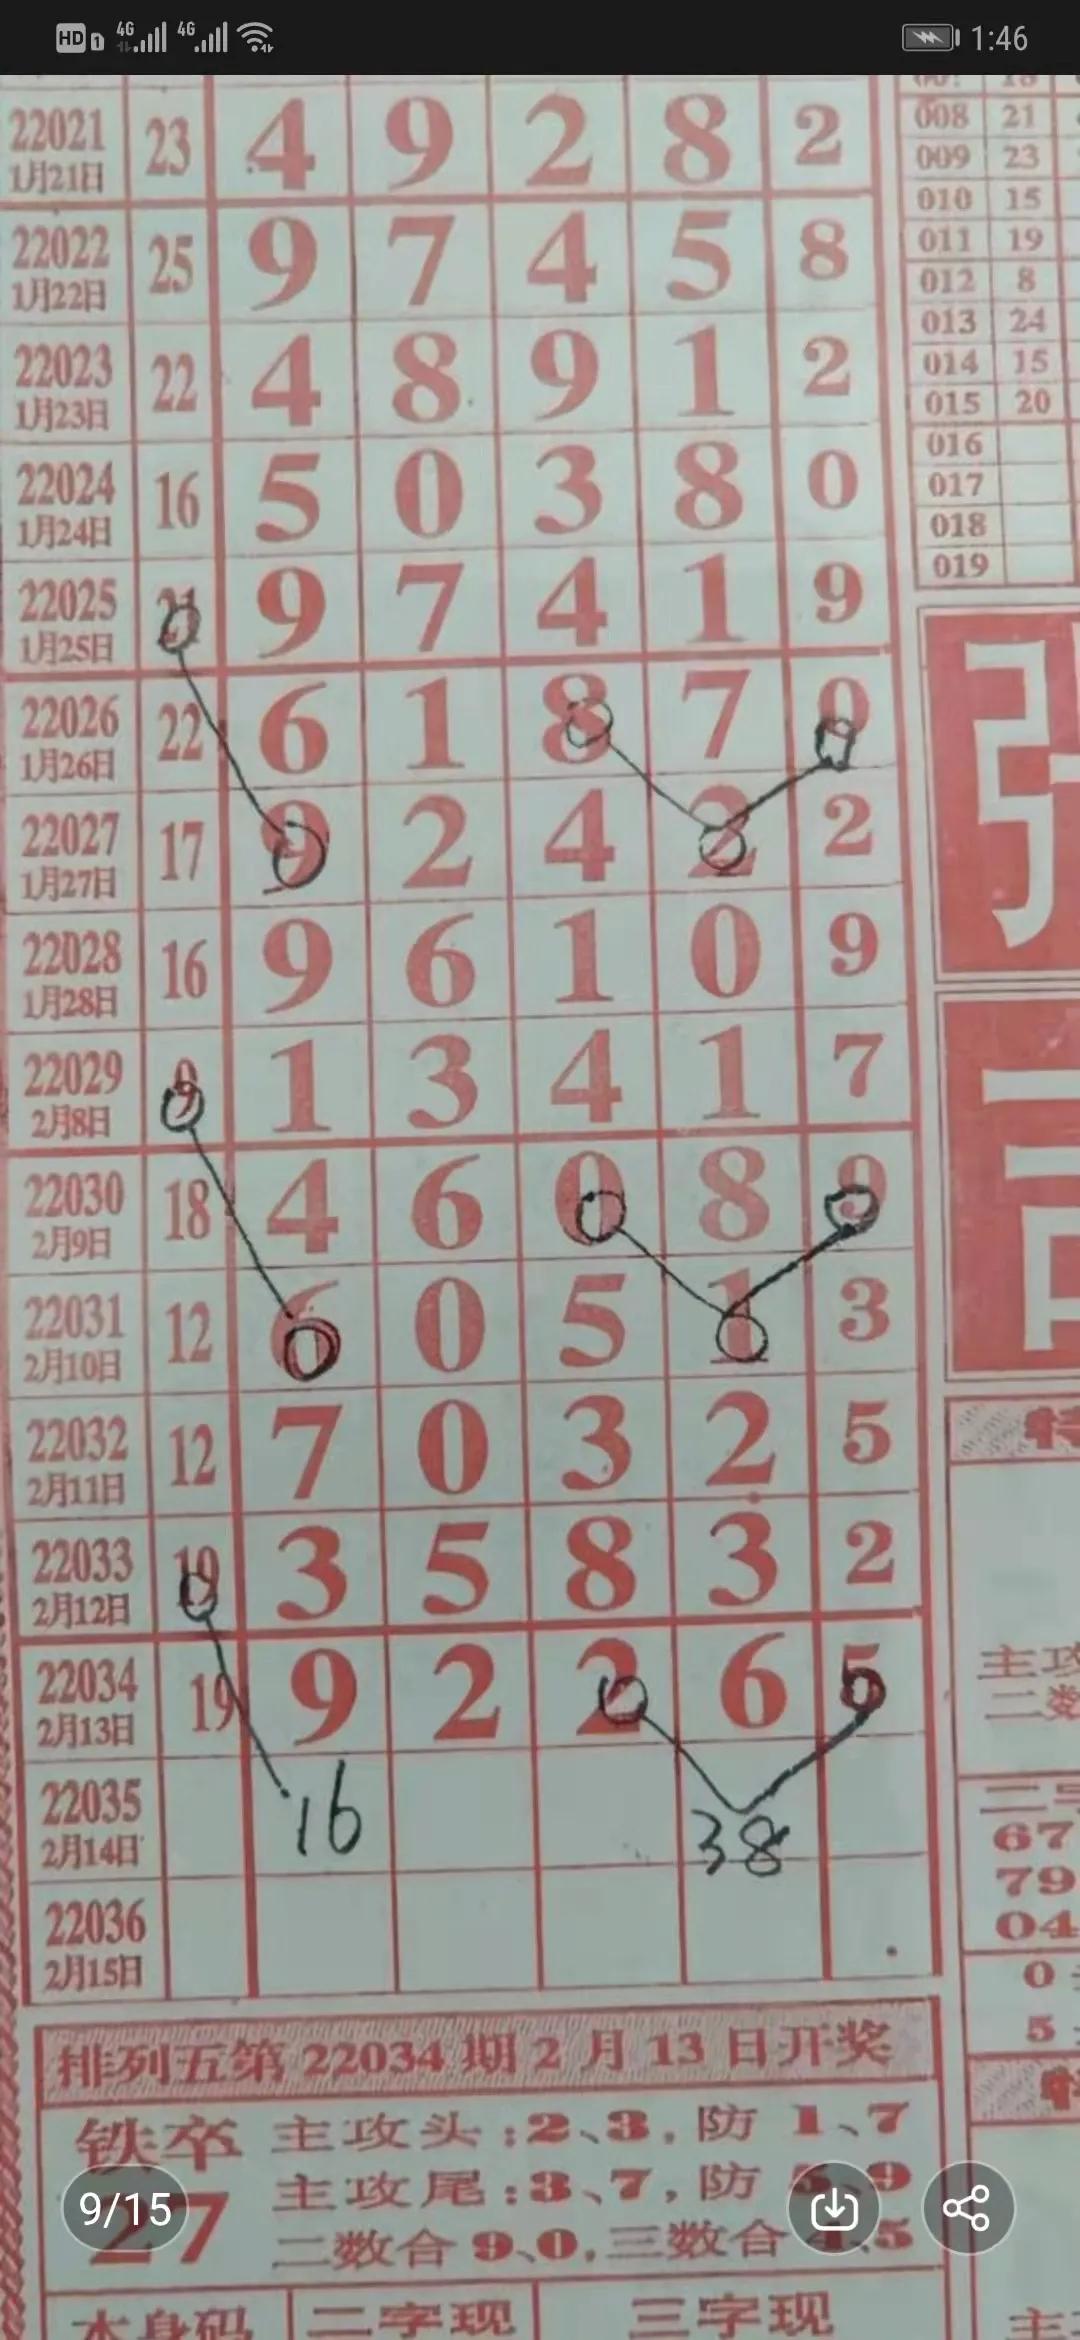 HD 1 4G 4G 1:46
22021 23 4 9 2 8 2
1月21日
22022 25 9 7 4 5 8
1月22日
22023 22 4 8 9 1 2
1月23日
22024 16 5 0 3 8 0
1月24日
22025 21 9 7 4 1 9
1月25日
22026 22 6 1 8 7 0
1月26日
22027 17 9 2 4 2 2
1月27日
22028 16 9 6 1 0 9
1月28日
22029 9 1 3 4 1 7
2月8日
22030 18 4 6 0 8 9
2月9日
22031 12 6 0 5 1 3
2月10日
22032 12 7 0 3 2 5
2月11日
22033 19 3 5 8 3 2
2月12日
22034 19 9 2 2 6 5
2月13日
22035 16 38
2月14日
22036
2月15日
排列五第22034期2月13日开奖
铁卒 主攻头:2、3,防1、7
27 主攻尾:3、7,防5、9
二数合9、0,三数合4、5
本身码 二字现 三字现
9/15
008 21
009 23
010 15
011 19
012 8
013 24
014 15
015 20
016
017
018
019
主攻
二数
67
79
04
0
5
主